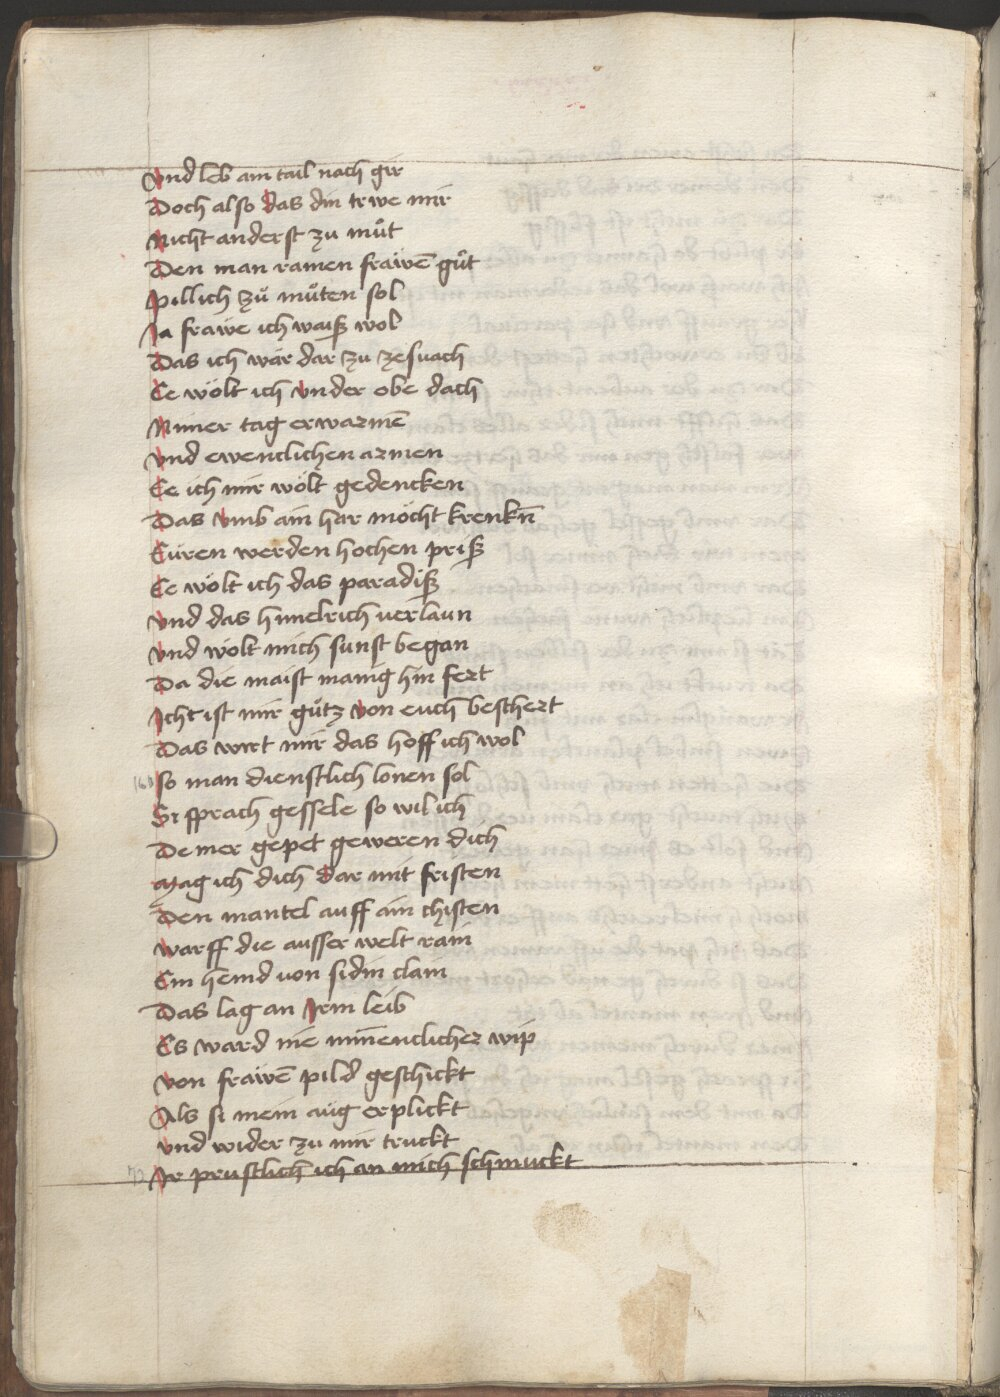 Vnd leb ain tail nach gir
Doch also das din trwe mir
Nicht anderst zu můt
Den man ramen frawē gůt
Pillich zů můten sol
Ja frawe ich waiß wol
Das ich wär dar zu ze swach
Ee wölt ich vnder obe dach
Nimer tag erwarmē
Vnd ewenclichen armen
Ee ich mir wölt gedencken
Das vmb ain har möcht krenkn̄
Eüren werden hochen priß
Ee wölt ich das paradiß
Vnd das himelrich uerlaun
Vnd wölt mich sunst began
Da die maist manig hin fert
Icht ist mir gůtz von euch beschert
Das wirt mir das hoff ich wol
So man dienstlich lonen sol
Si sprach gessele so wil ich
Deiner gepet geweren dich
Mag ich dich dar mit fristen
Den mantel auff ain chisten
Warff die ausser welt rain
Ein hemd von sidin clain
Das lag an irm leib
Es ward nie minēnclicher wip
Von frawē pild geschickt
Als si mein aug erplickt
Vnd wider zu mir truckt
Ir prustlich ich an mich schmuckt